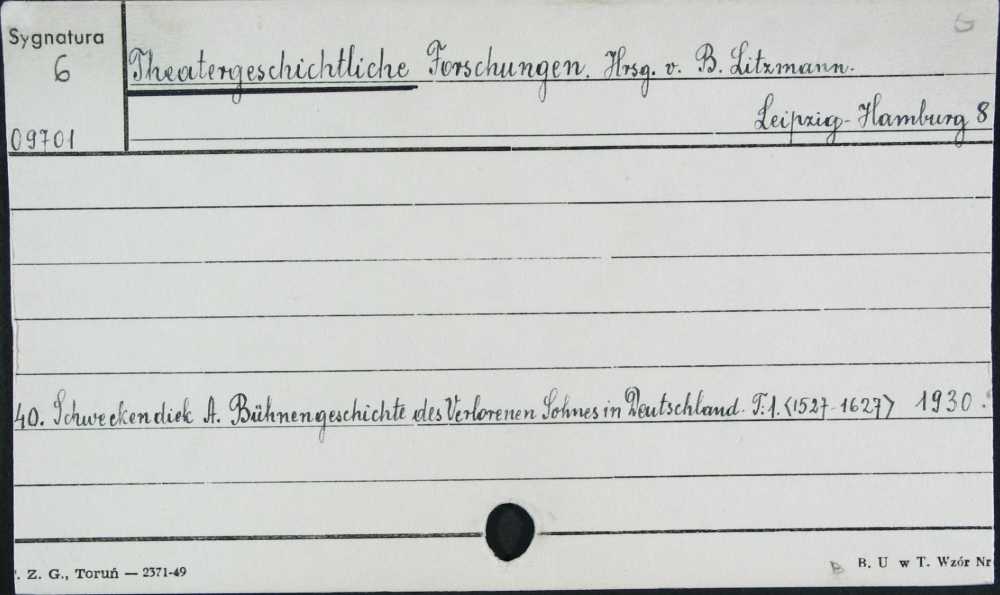 Sygnatura
6
6
Theatergeschichtliche Forschungen. Hrsg. v. B. Litzmann.
Leipzig-Hamburg 8
09701
40. Schweckendiek A. Bühnengeschichte des Verlorenen Sohnes in Deutschland. T. 1. <1527-1627> 1930.
. Z. G., Toruń — 2371-49
B
B. U w T. Wzór Nr